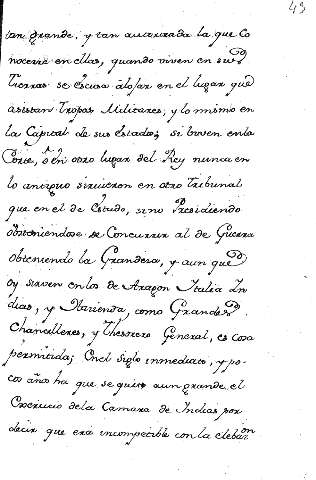 43
tan grande, y tan autorizada la que co
noceria en ellas, quando viven en sus
Tierras se escusa alojar en el lugar que
asistan Tropas Militares, y lo mismo en
la Capital de sus Estados; si viven en la
Corte, o en otro lugar del Rey nunca en
lo antiguo sirvieron en otro Tribunal
que en el de Estado, sino Presidiendo
obsteniendose se Concurrir al de Guerra
obteniendo la Grandeza, y aun que
oy sirven en los de Aragon Italia In
dias, y Hazienda, como Grandes
Chancilleres, y Thesorero General, es cosa
permitida; En el siglo inmediato, y po-
cos años ha que se quito a un grande el
Exercicio de la Camara de Indias por
decir que era incompatible con la elebaon